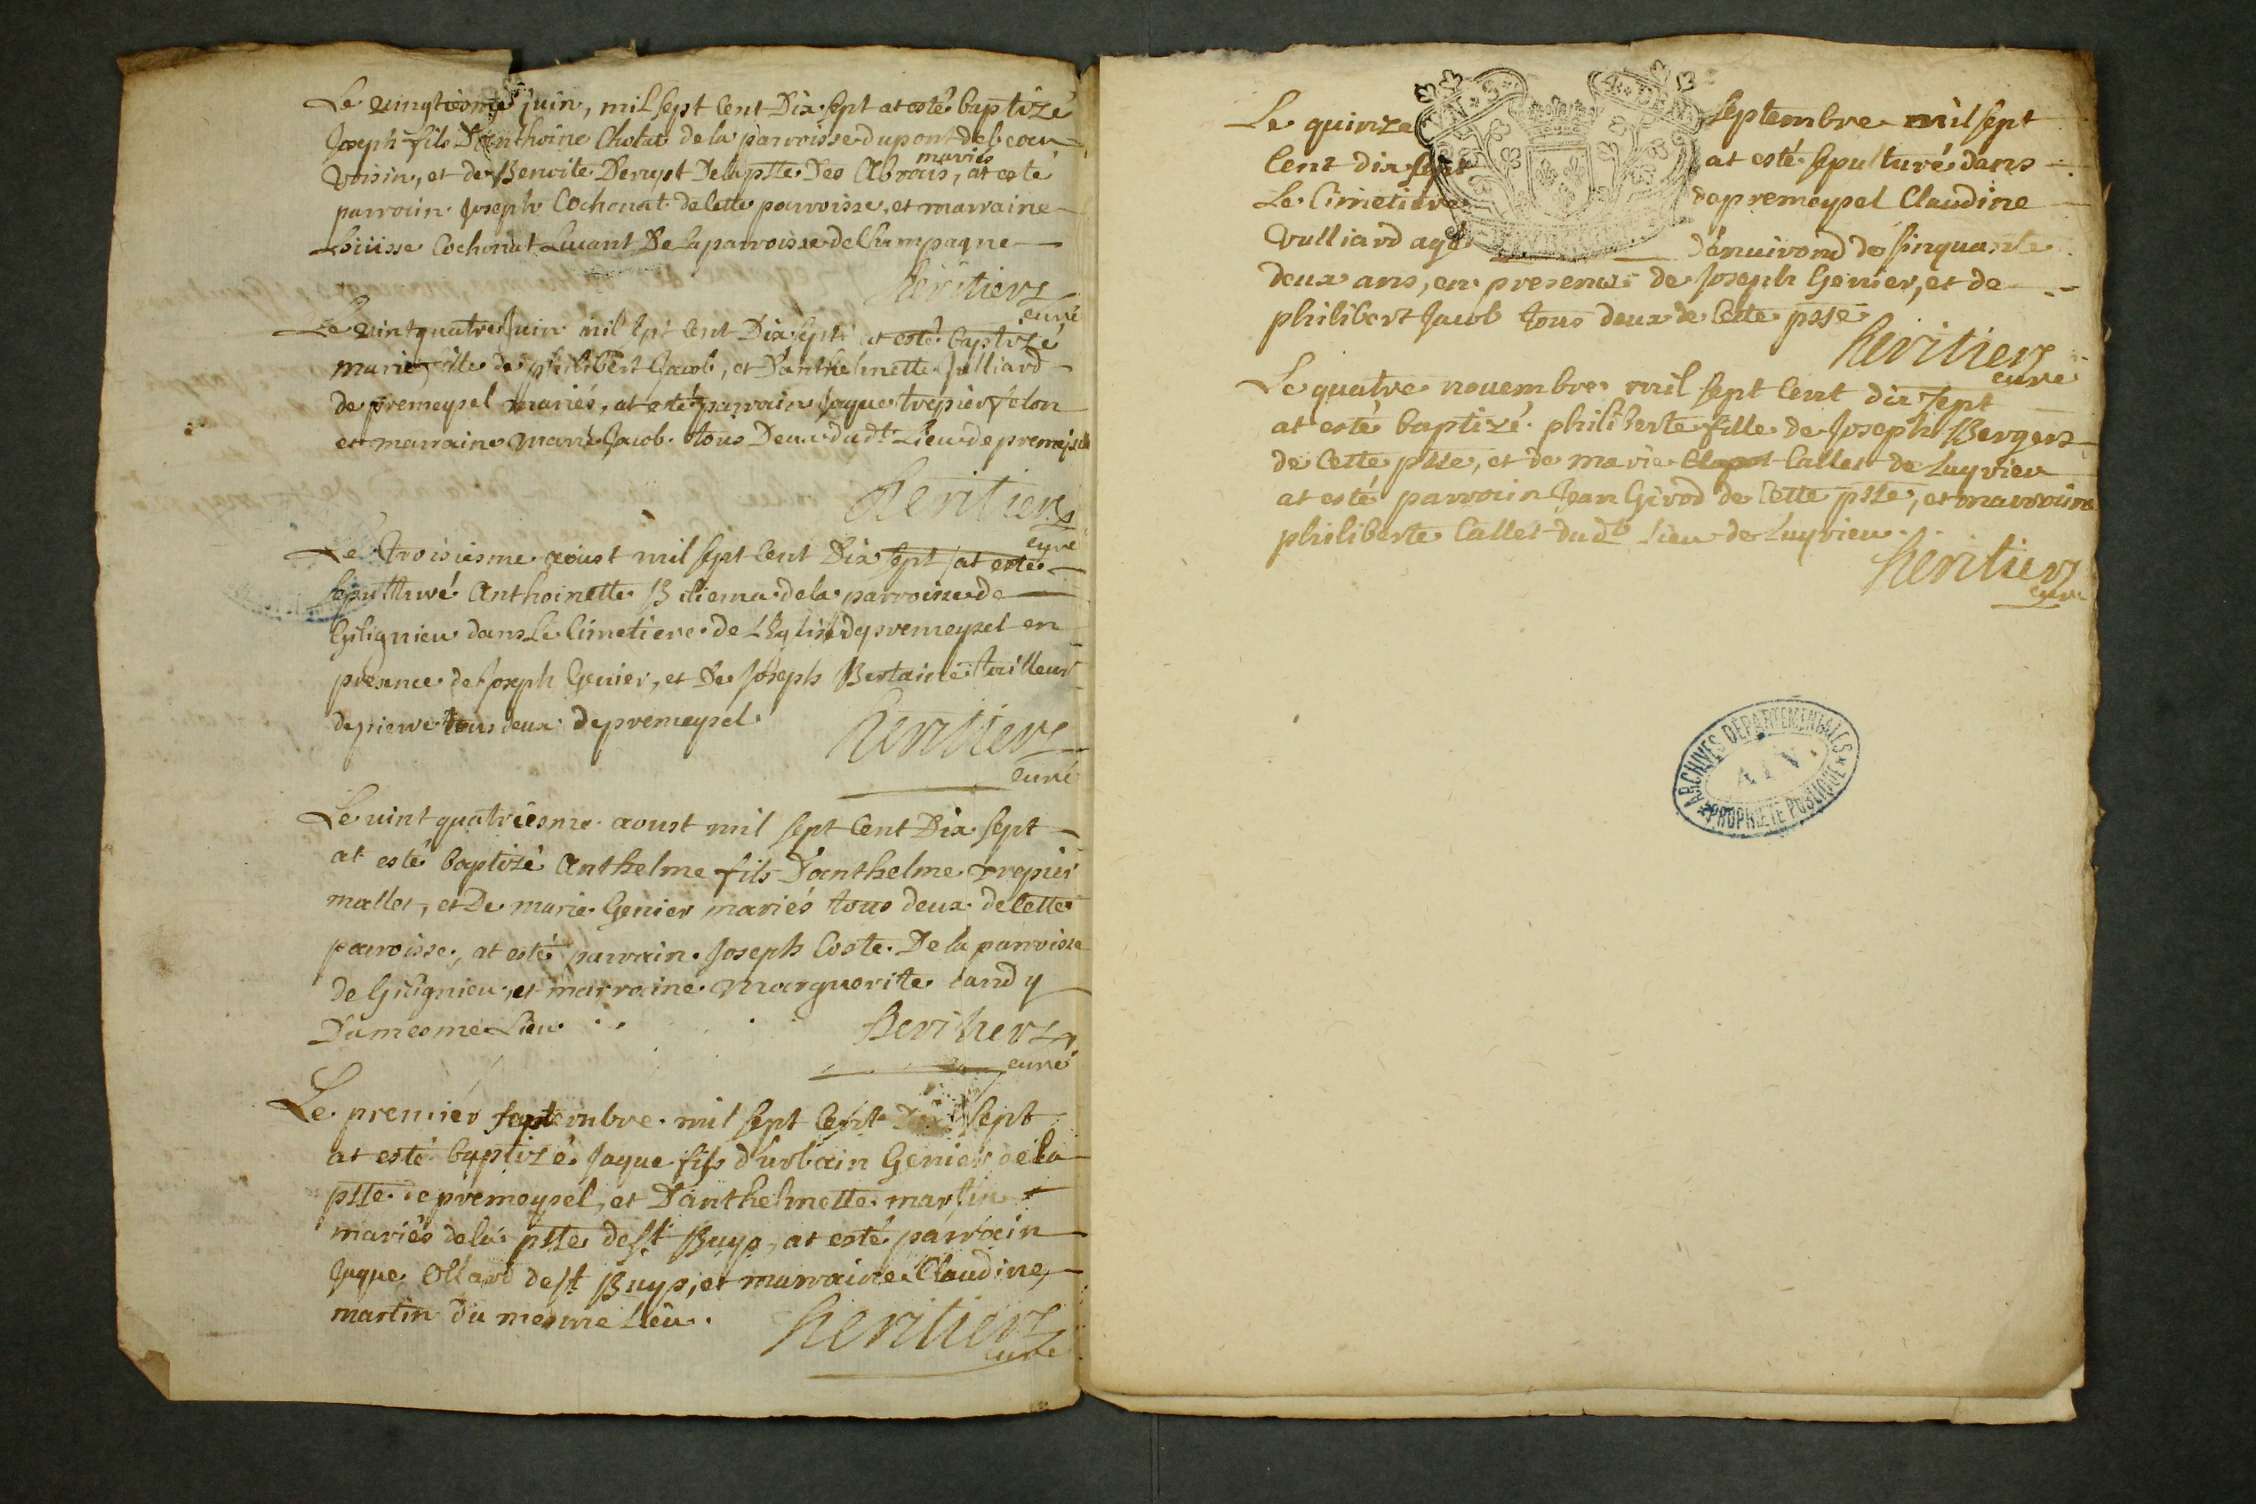 Le vingtiesme juin, mil sept Cent Dix sept at esté baptizé
Joseph fils D'anthoine Cholat de la parroisse du pont de beau
voisin, et de Benoite Derupt De la psse Des Abrais, mariés at esté
parrain Joseph Cochonat de Cette parroisse, et marraine
Loüisse Cochonat Luant De la parroisse de Champagne
heritiers
curé
Le vint quatre Juin mil sept Cent Dix sept at esté baptizé
marie fille de philibert Jacob, et D'anthelmette Julliard
de premeysel mariés, at esté parrain Jaque trepier felon
et marraine marie Jacob tous Deux du dt Lieu de premeysel
heritiers
curé
Le troisiesme aoust mil sept Cent Dix sept at esté
sepulturé Anthoinette Biliema de la parroisse de
Gilignieu dans Le Cimetiere de L'Eglise de premeysel en
presence de Joseph Genier, et De Joseph Bertaine tailleur
de pierre tous deux de premeysel
heritiers
curé
Le vint quatriesme aoust mil sept Cent Dix sept
at esté baptizé Anthelme fils D'anthelme trepier
mallet, et De marie Genier mariés tous deux de Cette
paroisse, at esté parrain Joseph Coste De la parroisse
de Gilignieu, et marraine marguerite landy
Du mesme Lieu
heritiers
curé
Le premier septembre mil sept Cent Dix sept
at esté baptizé Jaque fils d'urbain Genier de la
psse de premeysel, et D'anthelmette martin
mariés de la psse de st Buys, at esté parrain
Jaque Ollard de st Buys, et marraine Claudine
martin du mesme Lieu.
heritiers
curé
Le quinze septembre mil sept
Cent dix sept at esté sepulturé dans
Le Cimetiere de premeysel Claudine
Vulliard agé d'enuirond de sinquante
deux ans, en presence de Joseph Genier, et de
philibert Jacob tous deux de Cette psse
heritiers
curé
Le quatre nouembre mil sept Cent dix sept
at esté baptizé philiberte fille de Joseph Bergers
de Cette psse, et de marie Callet de Luyrieu
at esté parrain Jean Girod de Cette psse, et marraine
philiberte Callet du dt Lieu de Luyrieu.
heritiers
curé
ARCHIVES DÉPARTEMENTALES
AIN
PROPRIÉTÉ PUBLIQUE